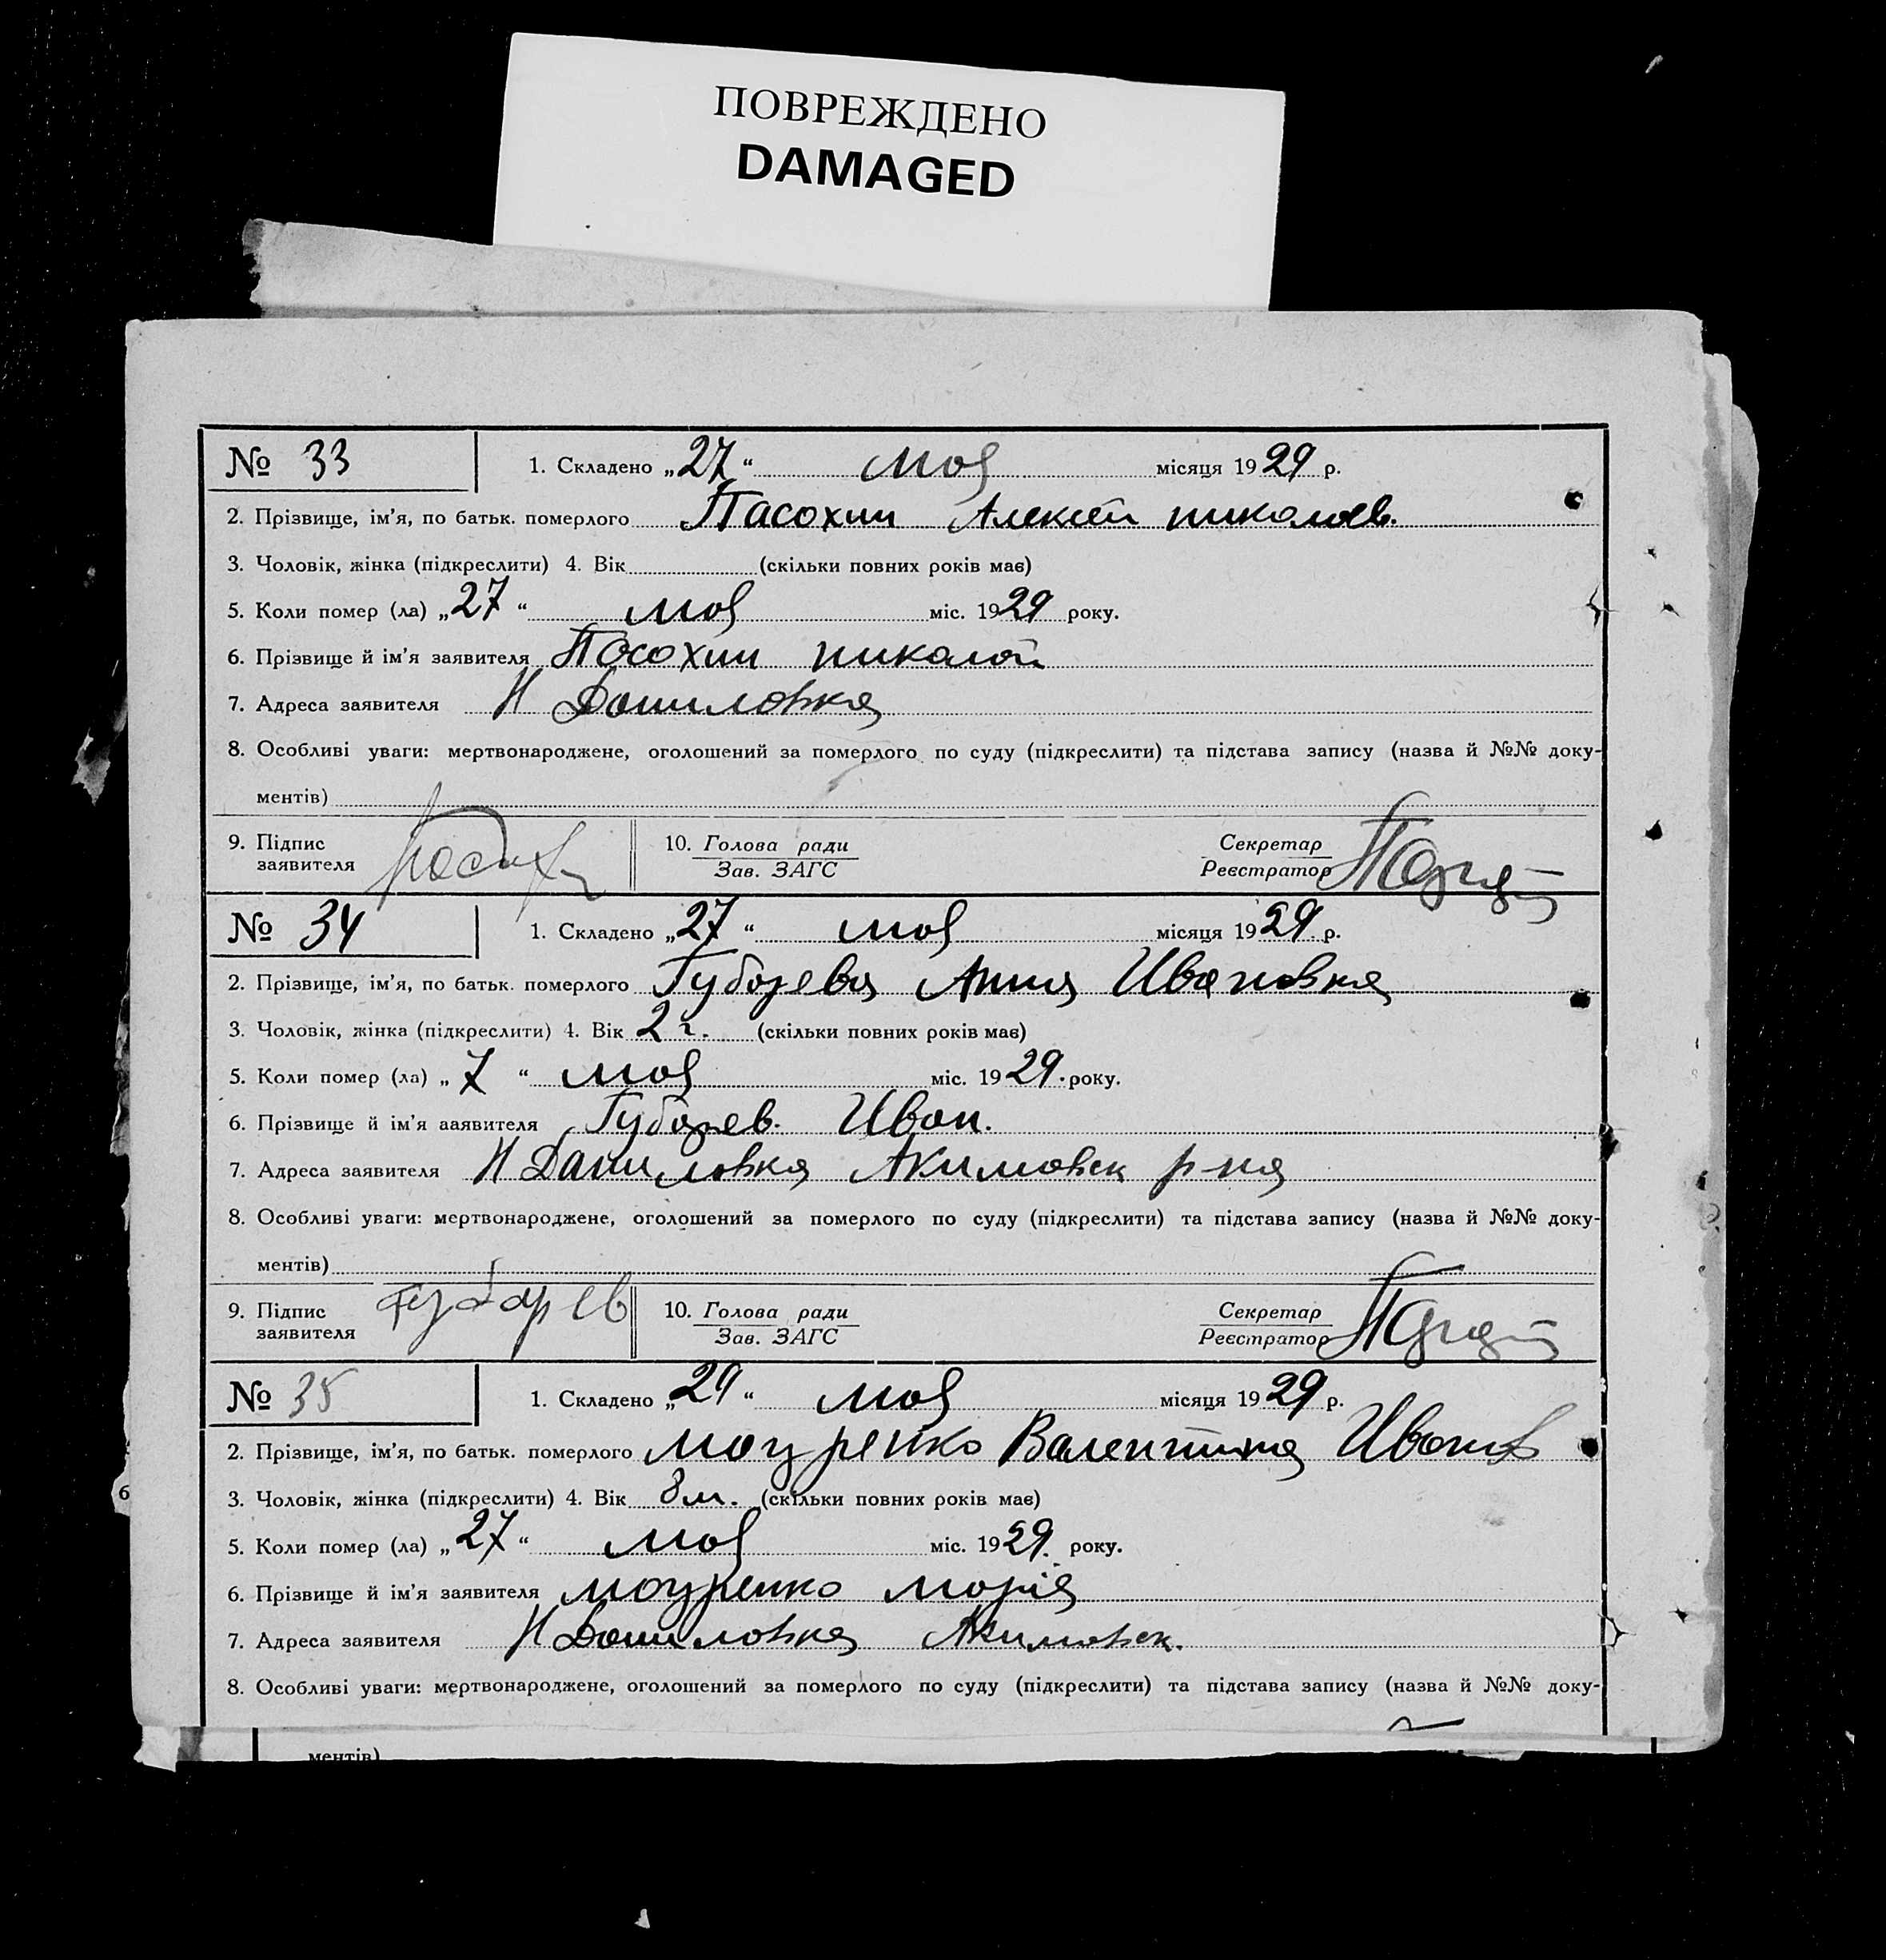 ПОВРЕЖДЕНО
DAMAGED
№ 33 1. Складено „27“ мая місяця 1929 р.
2. Прізвище, ім'я, по батьк. померлого Пасохин Алексей николаев.
3. Чоловік, жінка (підкреслити) 4. Вік (скільки повних років має)
5. Коли помер (ла) „27“ мая міс. 1929 року.
6. Прізвище й ім'я заявителя Пасохин николай
7. Адреса заявителя Н Даниловка
8. Особливі уваги: мертвонароджене, оголошений за померлого по суду (підкреслити) та підстава запису (назва й №№ доку-
ментів)
9. Підпис заявителя 10. Голова ради Зав. ЗАГС Секретар Реєстратор
№ 34 1. Складено „27“ мая місяця 1929 р.
2. Прізвище, ім'я, по батьк. померлого Губарева Анна Ивановна
3. Чоловік, жінка (підкреслити) 4. Вік 2 г. (скільки повних років має)
5. Коли помер (ла) „7“ мая міс. 1929. року.
6. Прізвище й ім'я ааявителя Губарев. Иван.
7. Адреса заявителя Н Даниловка Акимовск р-на
8. Особливі уваги: мертвонароджене, оголошений за померлого по суду (підкреслити) та підстава запису (назва й №№ доку-
ментів)
9. Підпис заявителя Губарев 10. Голова ради Зав. ЗАГС Секретар Реєстратор
№ 35 1. Складено „29“ мая місяця 1929 р.
2. Прізвище, ім'я, по батьк. померлого Моцренко Валентина Иванов
3. Чоловік, жінка (підкреслити) 4. Вік 8 м. (скільки повних років має)
5. Коли помер (ла) „27“ мая міс. 1929. року.
6. Прізвище й ім'я заявителя моцренко марія
7. Адреса заявителя Н Даниловка Акимовск.
8. Особливі уваги: мертвонароджене, оголошений за померлого по суду (підкреслити) та підстава запису (назва й №№ доку-
ментів)